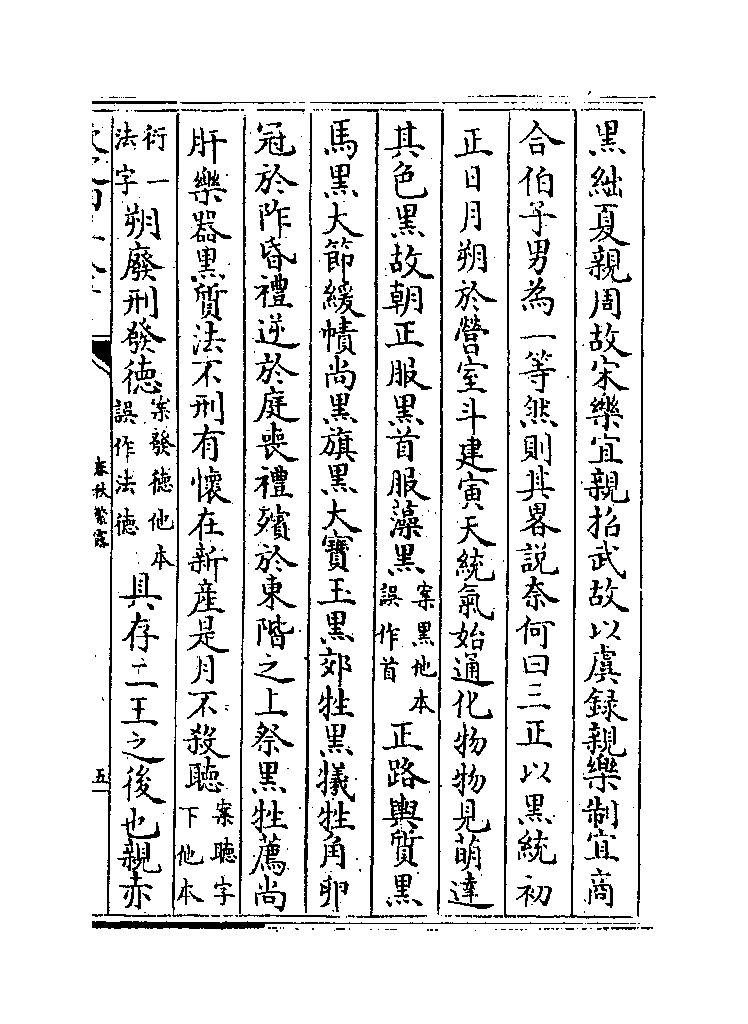 黑絀夏親周故宋樂宜親招武故以虞録親樂制宜商
合伯子男為一等然則其畧説奈何曰三正以黑統初
正日月朔於營室斗建寅天統氣始通化物物見萌達
其色黑故朝正服黑首服藻黑案黑他本誤作首正路輿質黑
馬黑大節緩幘尚黑旗黑大寶玉黑郊牲黑犧牲角卵
冠於阼昏禮逆於庭喪禮殯於東階之上祭黑牲薦尚
肝樂器黑質法不刑有懷在新產是月不殺聽案聽字下他本
衍一法字朔廢刑發徳案發徳他本誤作法徳具存二王之後也親赤
春秋繁露
五